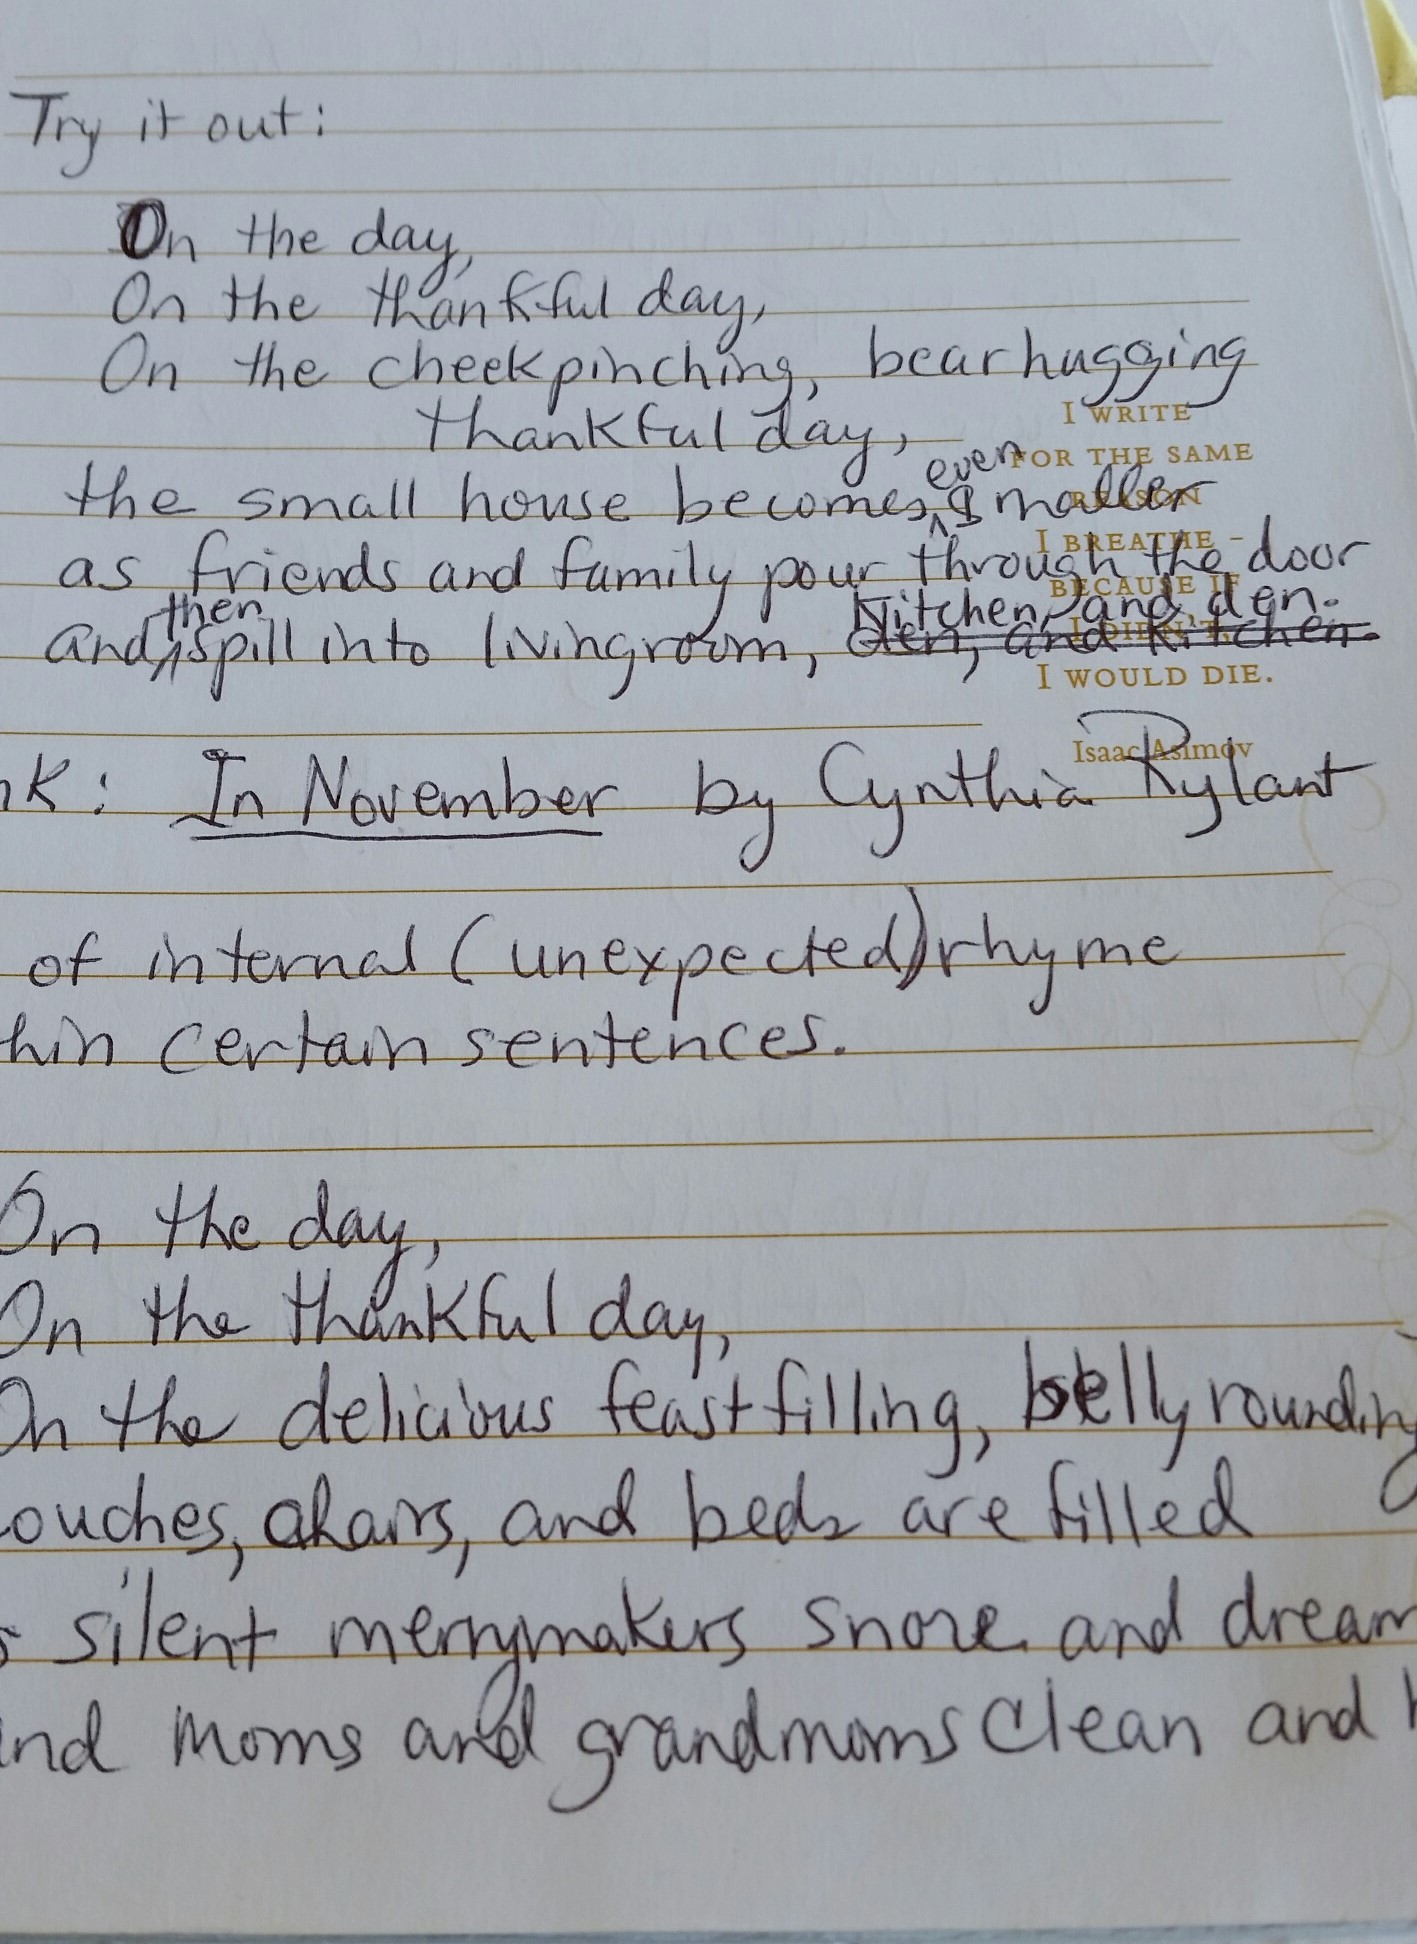 Try it out:
On the day,
On the thankful day,
On the cheekpinching, bearhugging
thankful day,
I WRITE
FOR THE SAME
REASON
I BREATHE -
BECAUSE IF
I DIDN'T,
I WOULD DIE.
Isaac Asimov
the small house becomes even smaller
as friends and family pour through the door
and then spill into livingroom, kitchen, and den.
den, and kitchen.
K: In November by Cynthia Rylant
of internal (unexpected) rhyme
hin certain sentences.
On the day,
On the thankful day,
On the delicious feastfilling, bellyrounding
ouches, chairs, and beds are filled
silent merrymakers snore and dream
nd moms and grandmoms clean and